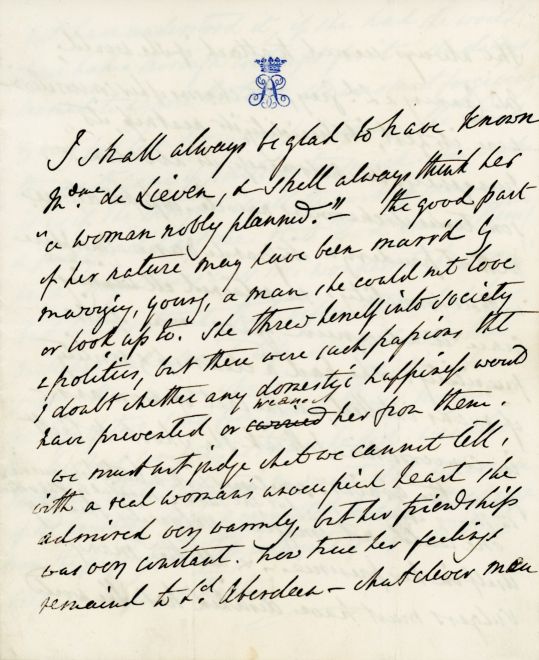 I shall always be glad to have known
Mdme. de Lieven, & shall always think her
"a woman nobly planned." the good part
of her nature may have been marr'd by
marrying, young, a man she could not love
or look up to. She threw herself into society
& politics, but there were such passions tht
I doubt whether any domestic happiness would
have prevented or carried weaned her from them.
we must not judge what we cannot tell,
with a real woman's unoccupied heart she
admired very warmly, but her friendships
was very constant. how true her feelings
remained to Ld. Aberdeen - what clever man